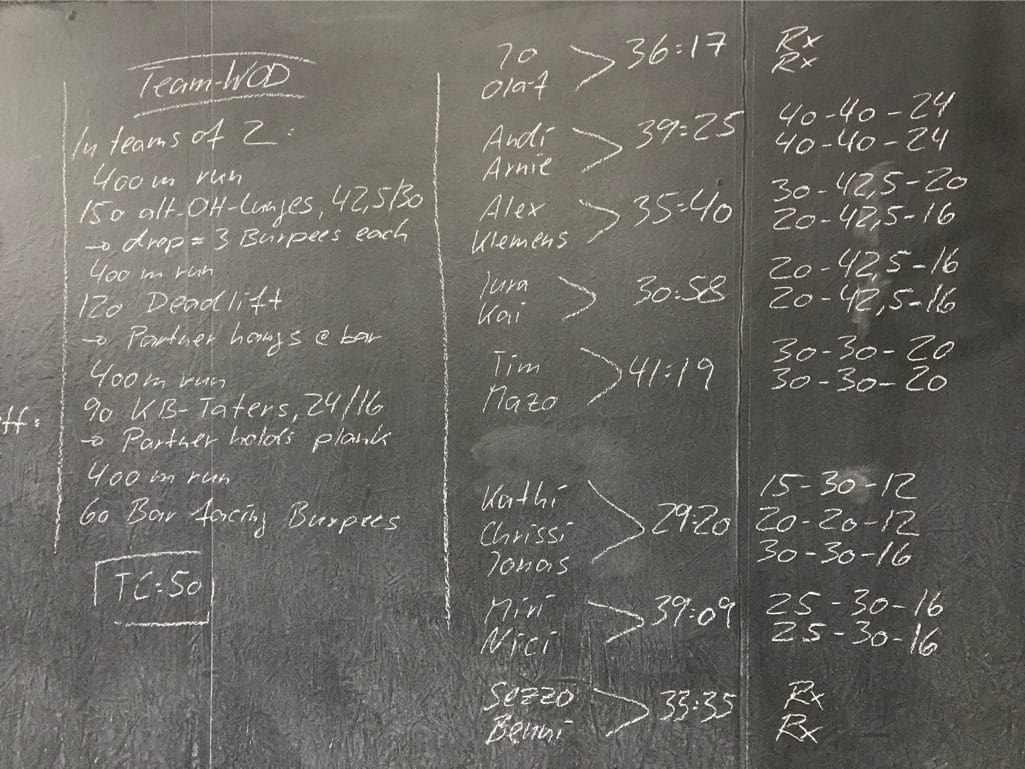 Team-WOD
In teams of 2:
400 m run
150 alt-OH-Lunges, 42,5/30
→ drop = 3 Burpees each
400 m run
120 Deadlift
→ Partner hangs @ bar
400 m run
90 KB-Taters, 24/16
→ Partner holds plank
400 m run
60 Bar facing Burpees
TC=50
Jo
Olaf
36:17
Rx
Rx
Andi
Arnie
39:25
40-40-24
40-40-24
Alex
Klemens
35:40
30-42,5-20
20-42,5-16
Jura
Kai
30:58
20-42,5-16
20-42,5-16
Tim
Mazo
41:19
30-30-20
30-30-20
Kathi
Chrissi
Jonas
29:20
15-30-12
20-20-12
30-30-16
Miri
Nici
39:09
25-30-16
25-30-16
Sezzo
Benni
33:35
Rx
Rx